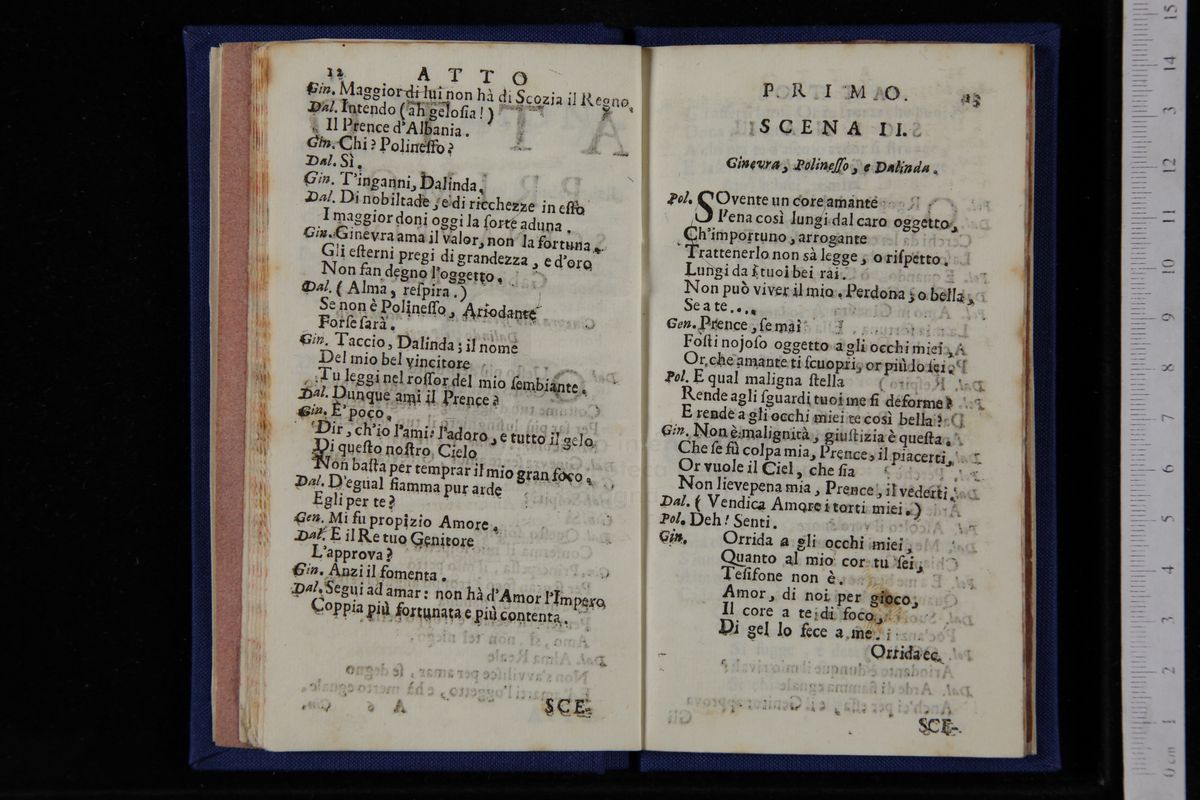 12 ATTO
Gin. Maggior di lui non hà di Scozia il Regno.
Dal. Intendo (ah gelosia!)
Il Prence d'Albania.
Gin. Chi? Polinesso?
Dal. Sì.
Gin. T'inganni, Dalinda.
Dal. Di nobiltade, e di ricchezze in esso
I maggior doni oggi la sorte aduna.
Gin. Ginevra ama il valor, non la fortuna.
Gli esterni pregi di grandezza, e d'oro
Non fan degno l'oggetto.
Dal. (Alma, respira.)
Se non è Polinesso, Ariodante
Forse sarà.
Gin. Taccio, Dalinda; il nome
Del mio bel vincitore
Tu leggi nel rossor del mio sembiante.
Dal. Dunque ami il Prence?
Gin. E' poco.
Dir, ch'io l'ami: l'adoro, e tutto il gelo
Di questo nostro Cielo
Non basta per temprar il mio gran foco.
Dal. D'egual fiamma pur arde
Egli per te?
Gen. Mi fu propizio Amore.
Dal. E il Re tuo Genitore
L'approva?
Gin. Anzi il fomenta.
Dal. Segui ad amar: non hà d'Amor l'Impero
Coppia più fortunata e più contenta.
SCE-
PRIMO. 13
SCENA II.
Ginevra, Polinesso, e Dalinda.
Pol. SOvente un core amante
Pena così lungi dal caro oggetto,
Ch'importuno, arrogante
Trattenerlo non sà legge, o rispetto.
Lungi da i tuoi bei rai.
Non può viver il mio. Perdona, o bella,
Se a te....
Gen. Prence, se mai
Fosti nojoso oggetto a gli occhi miei,
Or, che amante ti scuopri, or più lo sei.
Pol. E qual maligna stella
Rende agli sguardi tuoi me sì deforme?
E rende a gli occhi miei te così bella?
Gin. Non è malignità, giustizia è questa.
Che se fù colpa mia, Prence, il piacerti,
Or vuole il Ciel, che sia
Non lieve pena mia, Prence, il vederti.
Dal. (Vendica Amore i torti miei.)
Pol. Deh! Senti.
Gin. Orrida a gli occhi miei,
Quanto al mio cor tu sei,
Tesifone non è.
Amor, di noi per gioco,
Il core a te di foco,
Di gel lo fece a me.
Orrida ec.
SCE-